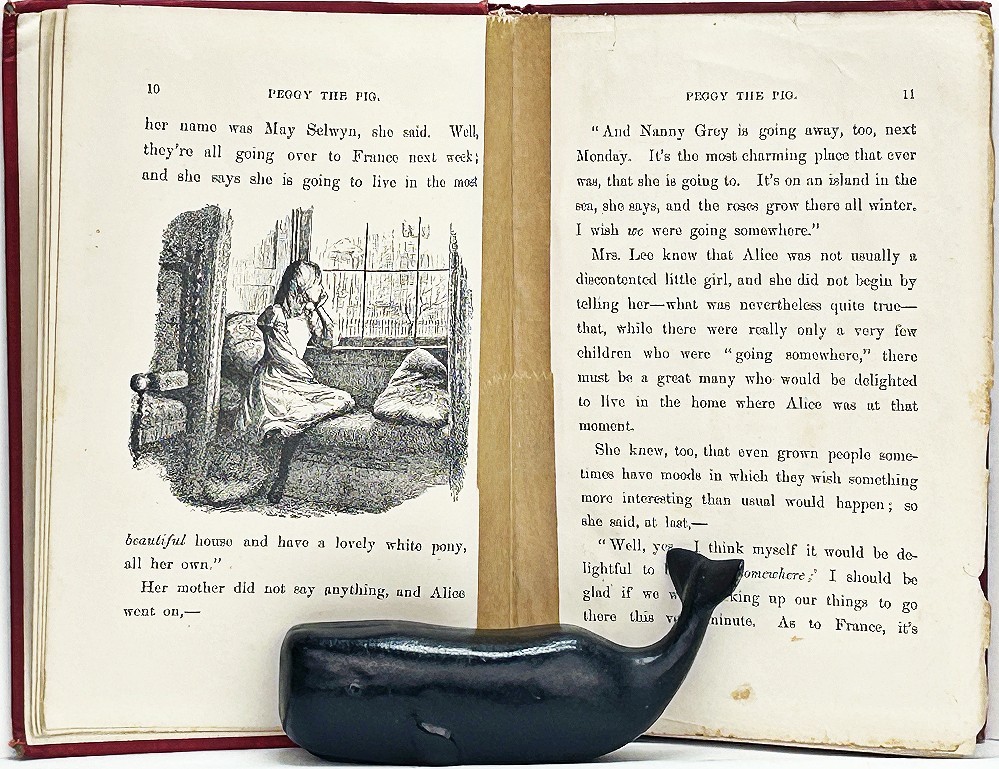 10
PEGGY THE PIG.
her name was May Selwyn, she said. Well,
they're all going over to France next week;
and she says she is going to live in the most
beautiful house and have a lovely white pony,
all her own."
Her mother did not say anything, and Alice
went on,—
PEGGY THE PIG.
11
"And Nanny Grey is going away, too, next
Monday. It's the most charming place that ever
was, that she is going to. It's on an island in the
sea, she says, and the roses grow there all winter.
I wish we were going somewhere."
Mrs. Lee knew that Alice was not usually a
discontented little girl, and she did not begin by
telling her—what was nevertheless quite true—
that, while there were really only a very few
children who were "going somewhere," there
must be a great many who would be delighted
to live in the home where Alice was at that
moment.
She knew, too, that even grown people some-
times have moods in which they wish something
more interesting than usual would happen; so
she said, at last,—
"Well, yes I think myself it would be de-
lightful to somewhere;' I should be
glad if we king up our things to go
there this minute. As to France, it's